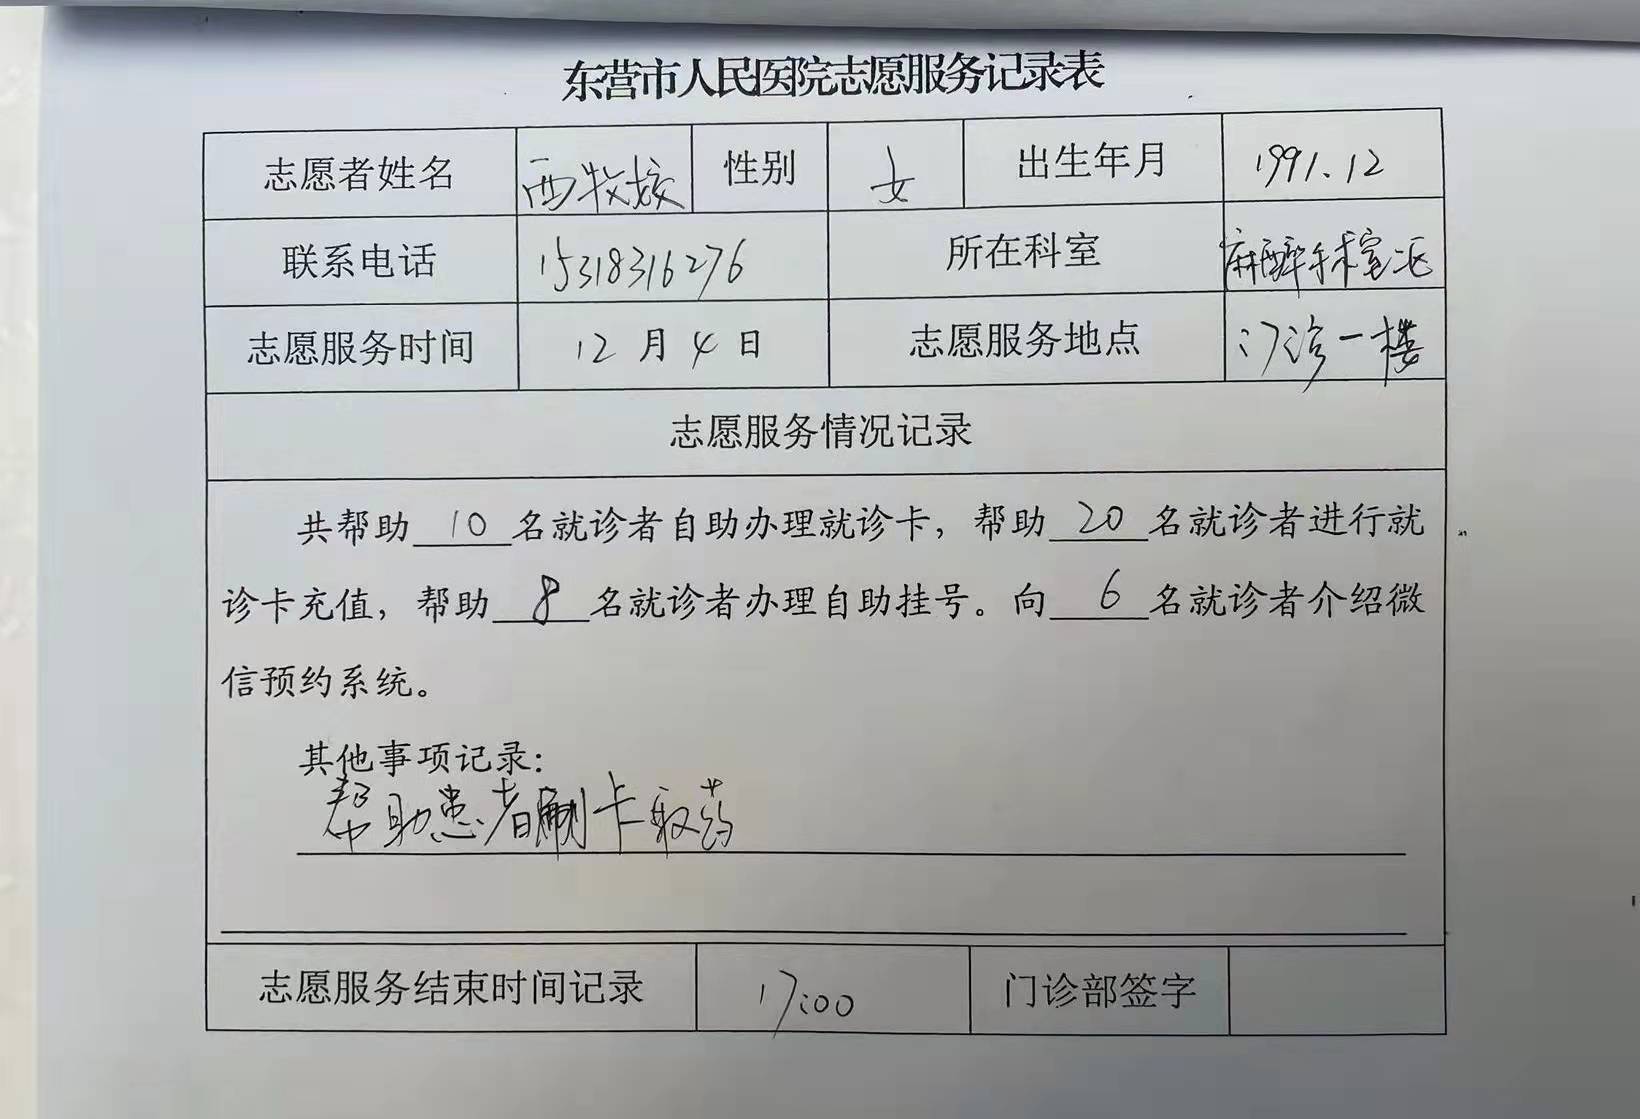 东营市人民医院志愿服务记录表
志愿者姓名 西牧姣 性别 女 出生年月 1991.12
联系电话 15318316276 所在科室 麻醉手术室
志愿服务时间 12月4日 志愿服务地点 门诊一楼
志愿服务情况记录
共帮助 10 名就诊者自助办理就诊卡，帮助 20 名就诊者进行就
诊卡充值，帮助 8 名就诊者办理自助挂号。向 6 名就诊者介绍微
信预约系统。
其他事项记录：
帮助患者刷卡取药
志愿服务结束时间记录 17:00 门诊部签字